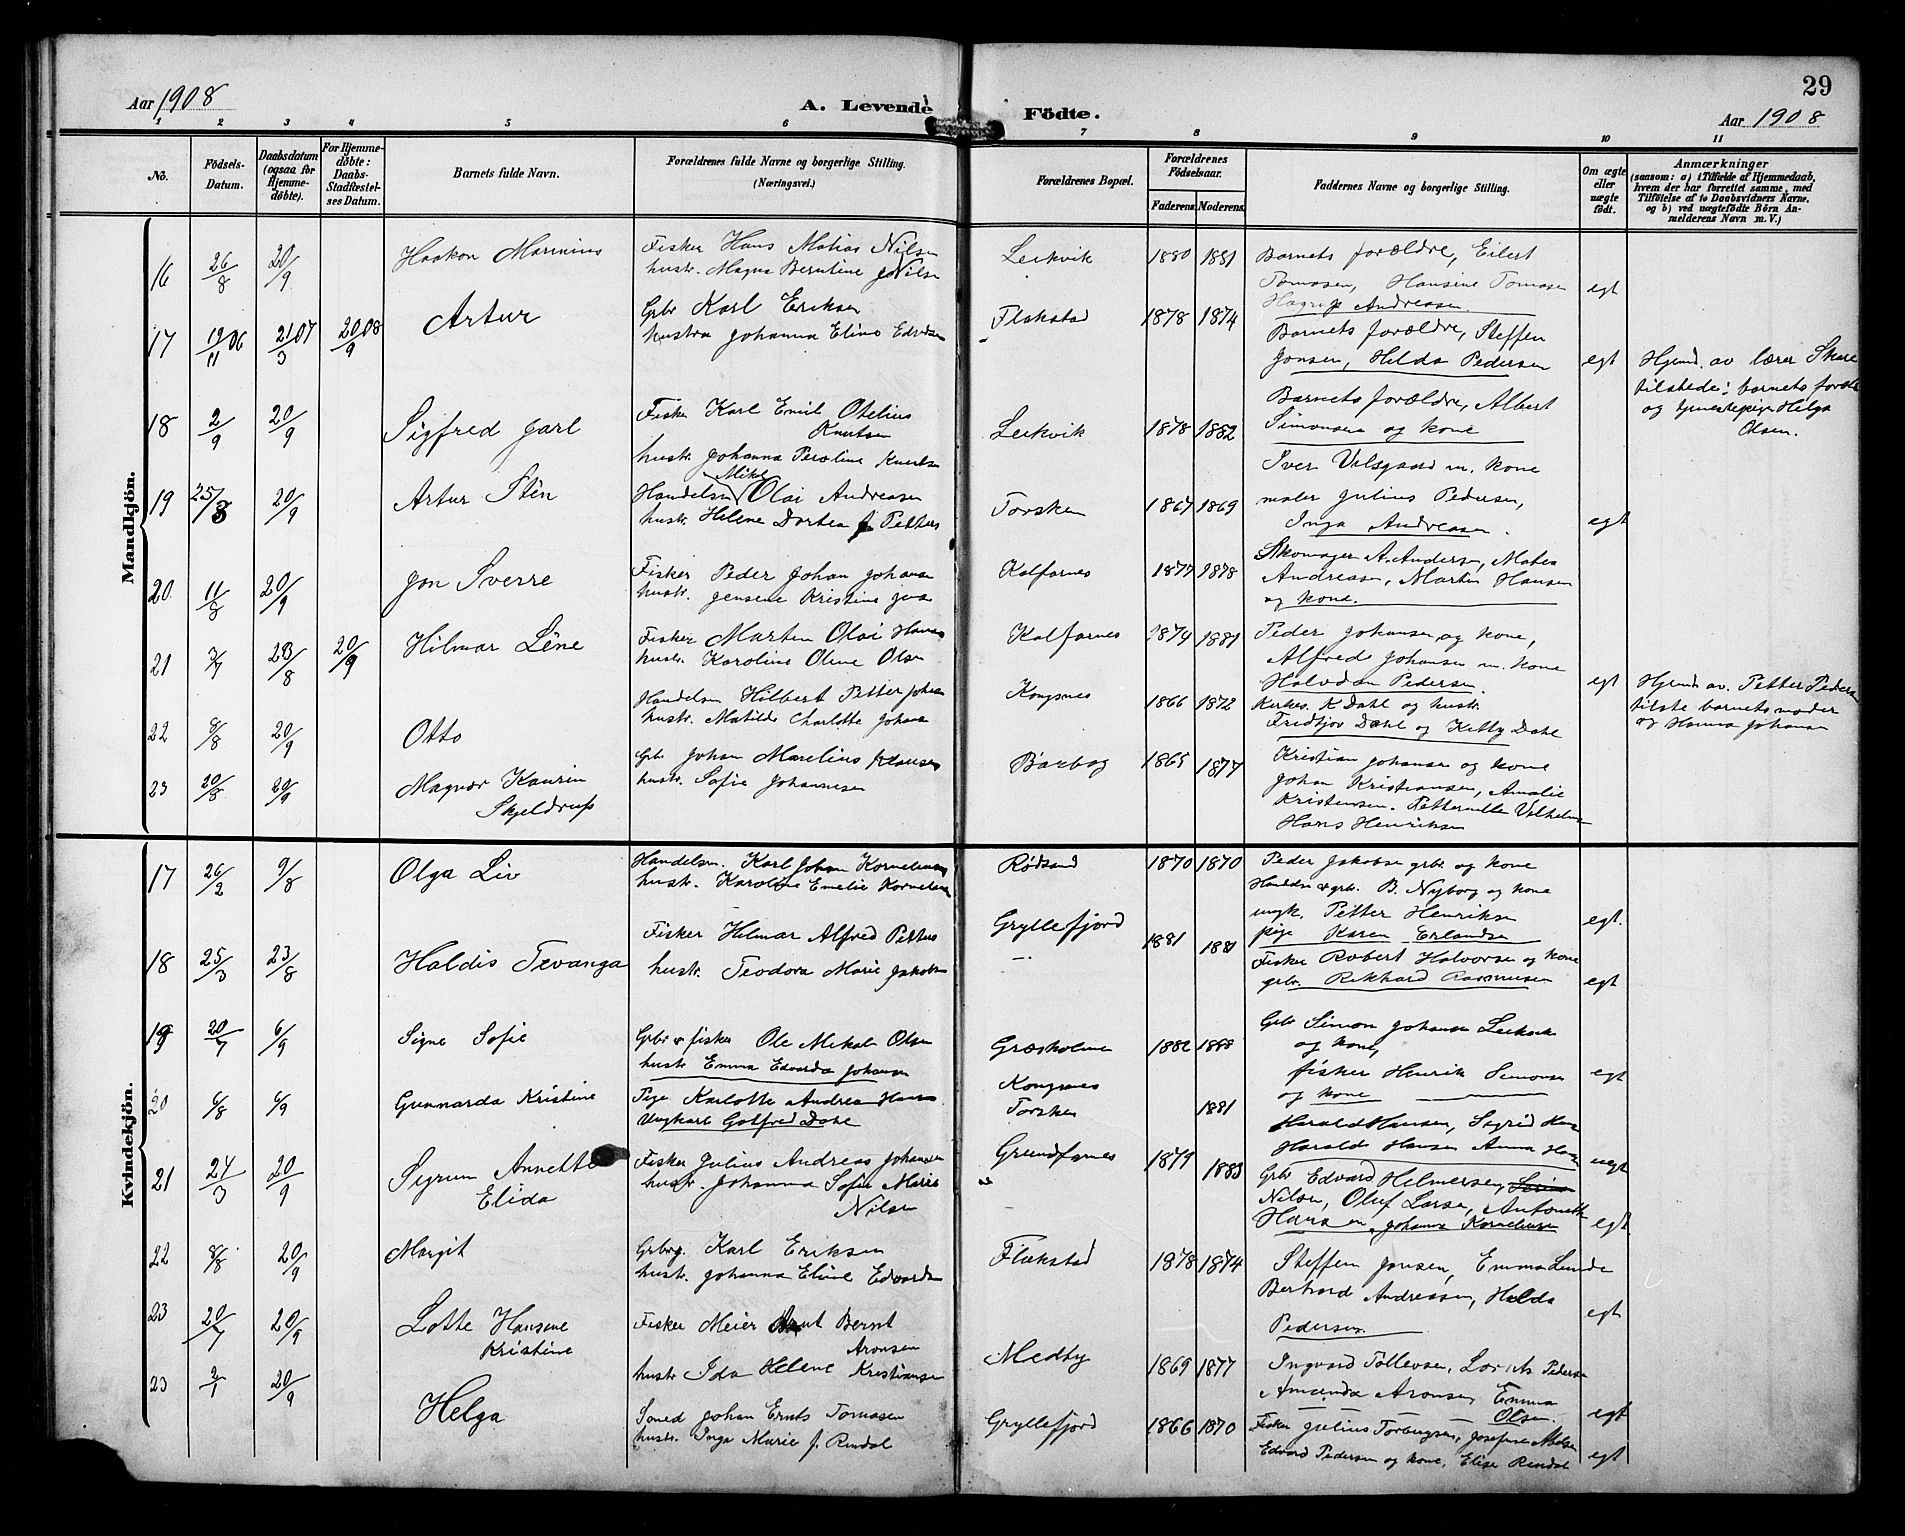 29
Aar 1908
A. Levende Födte.
Aar 1908
1 2 3 4 5 6 7 8 9 10 11
No.
Födsels-Datum.
Daabsdatum (ogsaa for Hjemme-döbte).
For Hjemme-döbte: Daabs-Stadfæstel-ses Datum.
Barnets fulde Navn.
Forældrenes fulde Navne og borgerlige Stilling.
(Næringsvei.)
Forældrenes Bopæl.
Forældrenes Födselsaar.
Faderens. Moderens.
Faddernes Navne og borgerlige Stilling.
Om ægte eller uægte födt.
Anmærkninger
(saasom: a) i Tilfælde af Hjemmedaab,
hvem der har forrettet samme, med
Tilföielse af to Daabsvidners Navne,
og b) ved uægtefödte Börn An-
melderens Navn m. V.)
Mandkjön.
16 26/8 20/9 Haakon Marinius
Fisker Hans Matias Nilsen
hustr. Magna Berntine Nilsen
Leikvik 1880 1881
Barnets forældre, Eilert
Tomasen, Hansine Tomasen
Andreasen egt
17 19/11 06 21/3 07 20/9 08 Artur
Grbr Karl Eriksen
hustru Johanna Eline Edvardsen
Flakstad 1878 1874
Barnets forældre, Steffen
Jonsen, Hilda Pedersen egt
Hjemd. av lærer Skare
tilstede: barnets foræld
og tjenestepige Helga
Olsen.
18 2/9 20/9 Sigfred Jarl
Fisker Karl Emil Otelius
Knutsen
hustr. Johanna Peroline Knutsen
Leikvik 1878 1882
Barnets forældre, Albert
Simonsen og kone
19 25/3 20/9 Artur Stén
Handelsm Mikal Olai Andreasen
hustr. Helene Dortea
Torsken 1867 1869
Iver Valsgaard m. kone
maler Julius Pedersen,
Inga Andreasen. egt
20 11/8 20/9 Jon Sverre
Fisker Peder Johan Johansen
hustr. Jensine Kristine
Kalfarnes 1877 1878
Skomager A. Andersen,
Andreasen, Martin Hansen
og kone.
21 20/9 Hilmar Léne
Fisker Marten Olai Hansen
hustr. Karoline Oline Olsen
Kalfarnes 1874 1881
Peder Johansen og kone,
Alfred Johansen m. kone
Halvdan Pedersen. egt
Hjemd. av. Petter Pedersen
tilste barnets moder
og Hanna Johansen
22 20/9 Otto
Handelsm Hilbert Petter Johansen
hustr. Matilde Charlotte Johansen
Kongsnes 1866 1872
Kirkes. K Dahl og hustr.
Fridtjov Dahl og Ketty Dahl
23 20/8 20/9 Magnar Kaurin
Skjeldrup
Grb Johan Marelius Klausen
hustr. Sofie Johannesen
Barbog 1865 1877
Kristian Johansen og kone
Johan Kristiansen, Amalie
Kristensen. Petternille Vilhelmsen
Hans Henriksen
Kvindekjön.
17 26/2 9/8 Olga Liv
Handelsm. Karl Johan Korneliussen
hustr. Karoline Emelie Korneliussen
Rødsand 1870 1870
Peder Jakobsen grbr og kone
B. Nyborg og kone
ungk. Petter Henriksen
pige Karen Erlandsen egt.
18 25/3 23/8 Haldis Tevanga
Fisker Hilmar Alfred Pettersen
hustr. Teodora Marie Jakobsen
Gryllefjord 1881 1881
Fisker Robert Halvorsen og kone
grbr. Rikhard Rasmussen egt
19 20/7 6/9 Signe Sofie
Grbr & fisker Ole Mikal Olsen
hustr Emma Edvarda Johansen
Græsholmen 1882 1888
Grbr Simon Johansen Leikvik
og kone,
fisker Henrik Simonsen
og kone egt
20 6/8 6/9 Gunnarda Kristine
Pige Karlotte Andrea Hansen
Ungkarl Gotfred Dahl
Kongsnes
Torsken 1881
Harald Hansen, Sigrid Hansen
Harald Hansen Anna Hansen uegt
21 24/3 20/9 Sigrun Annette
Elida
Fisker Julius Andreas Johansen
hustr. Johanna Sofie Marie
Nilsen
Grundfarnes 1879 1883
Grbr Edvard Hilmersen,
Nilsen, Oluf Larsen, Antonette
Hansen, Johanna Korneliussen egt.
22 8/8 20/9 Margit
Grbrg. Karl Eriksen
hustr. Johanna Eline Edvardsen
Flakstad 1878 1874
Steffen Jonsen, Emma Lunde
Bertrand Andreassen, Hilda
Pedersen. egt
23 20/7 20/9 Lotte Hansine
Kristine
Fisker Meier Knut Bernt
Aronsen
hustr Ida Helene Kristiansen
Medby 1869 1877
Ingvard Tollevsen, Pedersen
Amanda Aronsen, Emma
Olsen. egt
23 2/1 20/9 Helga
Smed Johan Ernts Tomasen
hustr. Inga Marie f. Rindal
Gryllefjord 1866 1870
Fisker Julius Torbergsen, Josefine Nilsen
Edvard Pedersen og kone, Elise Rindal egt